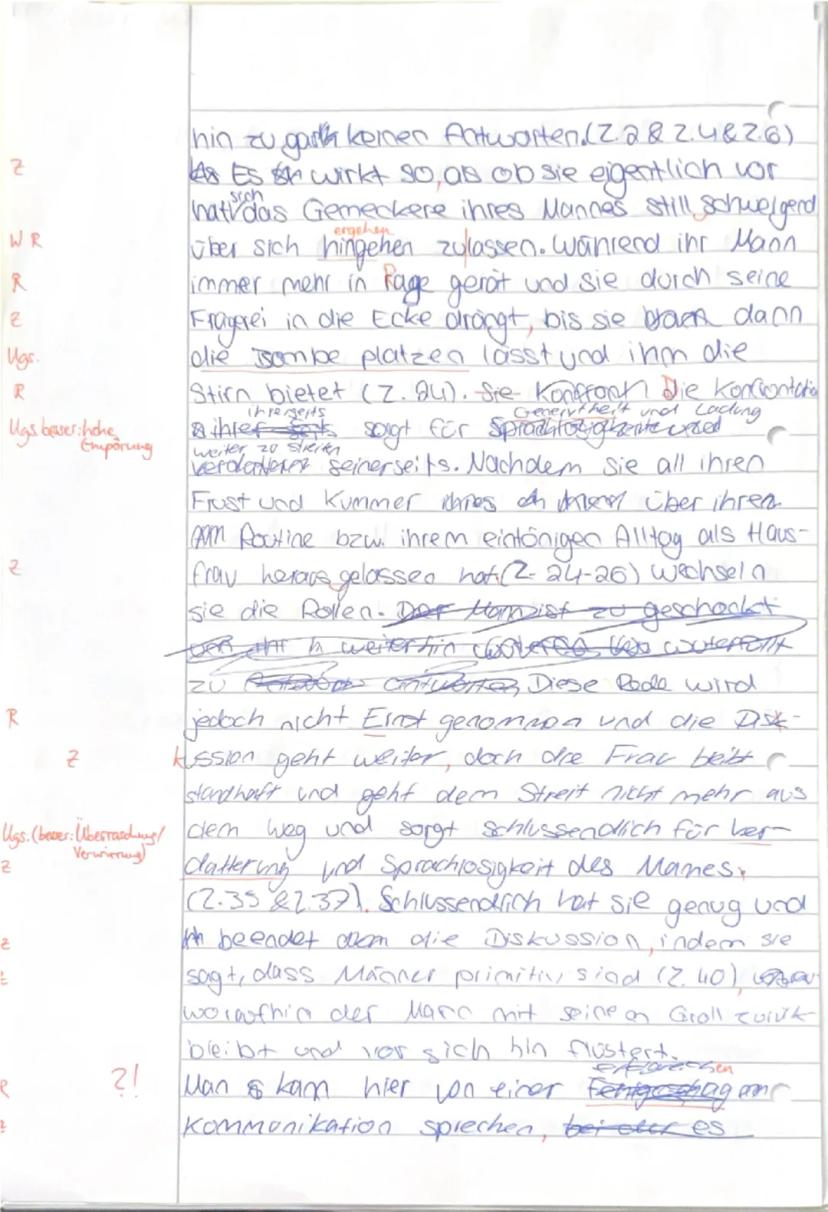 hin zu gar keinen Antworten. (Z.2 & Z.4 & Z.6)
Z Es wirkt so, als ob sie eigentlich vor
hat, sich das Gemeckere ihres Mannes still schweigend
W R über sich hingehen ergehen zulassen. Während ihr Mann
R immer mehr in Rage gerät und sie durch seine
Z Fragerei in die Ecke drängt, bis sie dann
Ugs. die Bombe platzen lässt und ihm die
R Stirn bietet (Z. 24). Die Konfrontatio
Ugs. besser: hohe Empörung ihrerseits sagt für Genervtheit und Ladung
weiter zu streiten seinerseits. Nachdem sie all ihren
Frust und Kummer über ihren
Routine bzw. ihrem eintönigen Alltag als Haus-
Z frau heraus gelassen hat (Z. 24-26) wechseln
sie die Rollen. Der Mann ist zu geschockt
weiterhin
zu Diese Rede wird
R jedoch nicht Ernst genommen und die Disk-
Z kussion geht weiter, doch die Frau beibt
standhaft und geht dem Streit nicht mehr aus
Ugs. (besser: Überraschung/ Verwirrung) dem Weg und sorgt schlussendlich für Ver-
Z datterung und Sprachlosigkeit des Manes.
(Z.35 & Z.37). Schlussendlich hat sie genug und
Z beendet die Diskussion, indem sie
Z sagt, dass Männer primitiv sind (Z. 40),
woraufhin der Mann mit seinen Groll zurük-
bleibt und vor sich hin flüstert.
R ?! Man kann hier von einer
Z Kommunikation sprechen, es